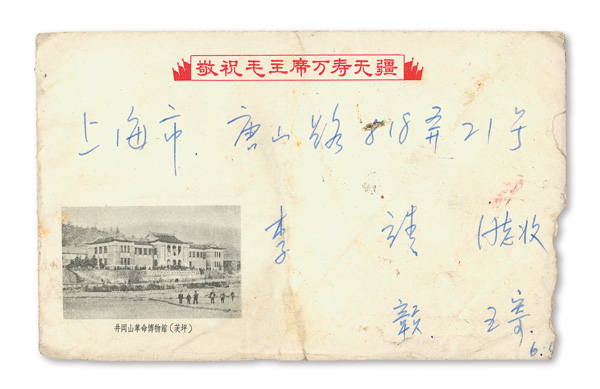 敬祝毛主席万寿无疆
上海市 唐山路 818弄21号
李 靖 同志收
井岡山革命博物館(茨坪)
赣 王寄
6.